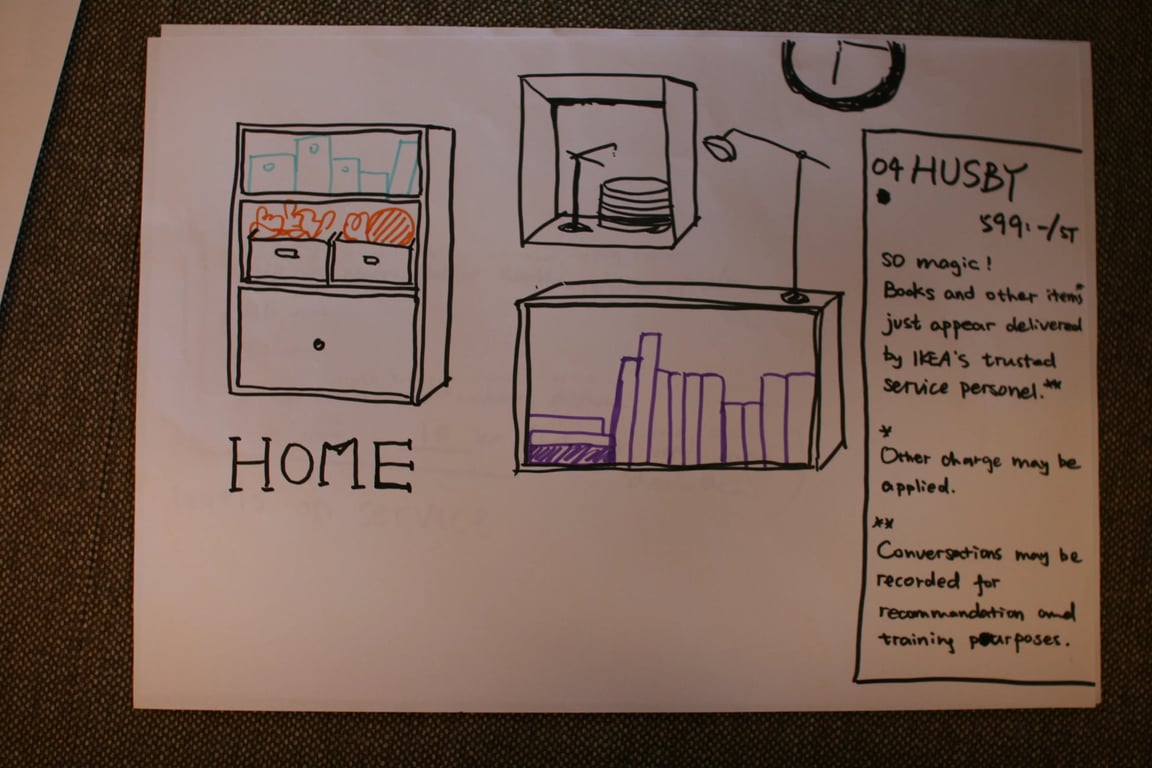 HOME
04 HUSBY
599:-/ST
SO magic!
Books and other items*
just appear delivered
by IKEA's trusted
service personel.**
*
Other charge may be
applied.
**
Conversations may be
recorded for
recommandation and
training purposes.